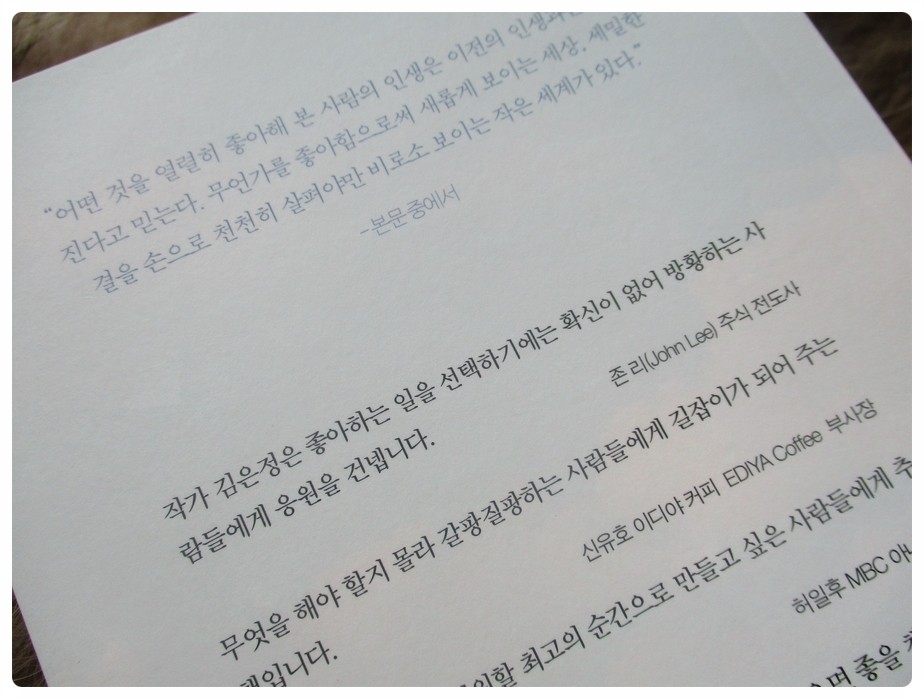 “어떤 것을 열렬히 좋아해 본 사람의 인생은 이전의 인생과는
진다고 믿는다. 무언가를 좋아함으로써 새롭게 보이는 세상, 세밀한
결을 손으로 천천히 살펴야만 비로소 보이는 작은 세계가 있다.”
-본문 중에서
작가 김은정은 좋아하는 일을 선택하기에는 확신이 없어 방황하는 사
람들에게 응원을 건넵니다.
존 리(John Lee) 주식 전도사
무엇을 해야 할지 몰라 갈팡질팡하는 사람들에게 길잡이가 되어 주는
책입니다.
신유호 이디야 커피 EDIYA Coffee 부사장
최고의 순간으로 만들고 싶은 사람들에게 추
허일후 MBC 아
좋을